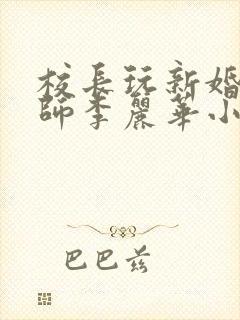 校長玩新婚
師李麗華小
巴巴兹